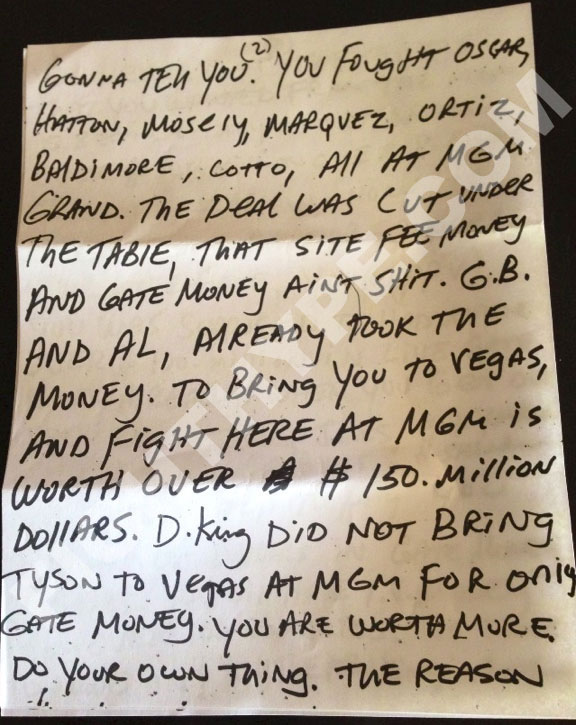 (2)
GONNA TELL YOU. YOU FOUGHT OSCAR,
HATTON, MOSELY, MARQUEZ, ORTIZ,
BALDIMORE, COTTO, ALL AT MGM
GRAND. THE DEAL WAS CUT UNDER
THE TABLE, THAT SITE FEE MONEY
AND GATE MONEY AINT SHIT. G.B.
AND AL, ALREADY TOOK THE
MONEY. TO BRING YOU TO VEGAS,
AND FIGHT HERE AT MGM IS
WORTH OVER $ 150. MILLION
DOLLARS. D. King DID NOT BRING
TYSON TO VEGAS AT MGM FOR ONLY
GATE MONEY. YOU ARE WORTH MORE.
DO YOUR OWN THING. THE REASON